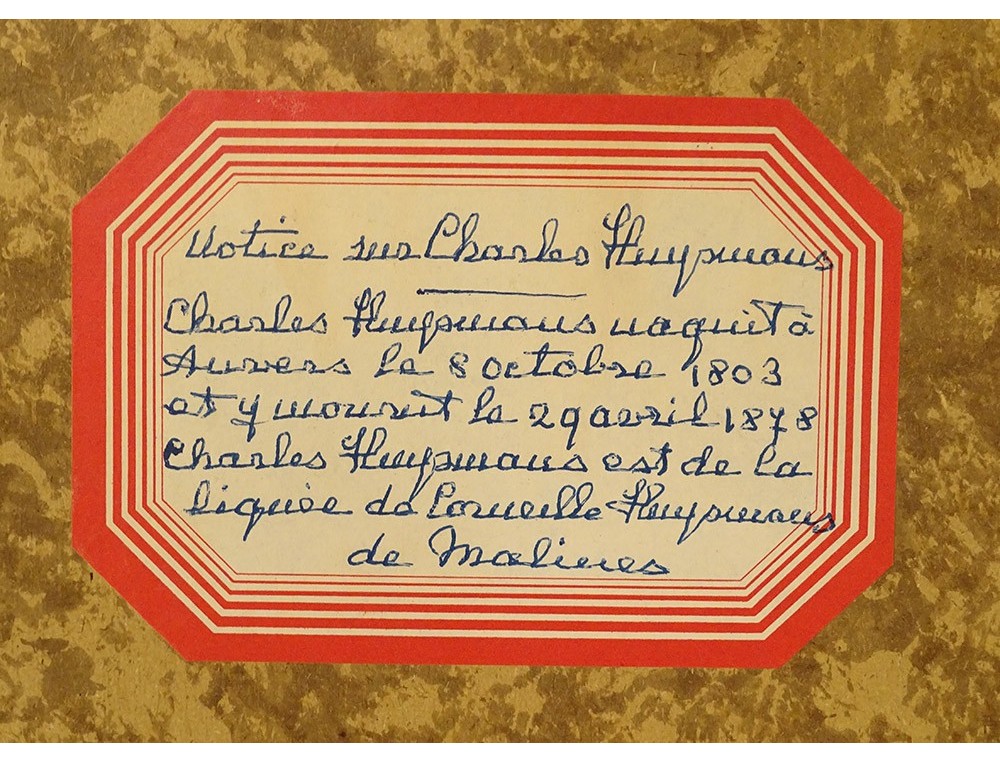 Notice sur Charles Huypmans
Charles Huypmans naquit à
Anvers le 8 octobre 1803
et y mourut le 29 avril 1878
Charles Huypmans est de la
lignée de Corneille Huypmans
de Malines